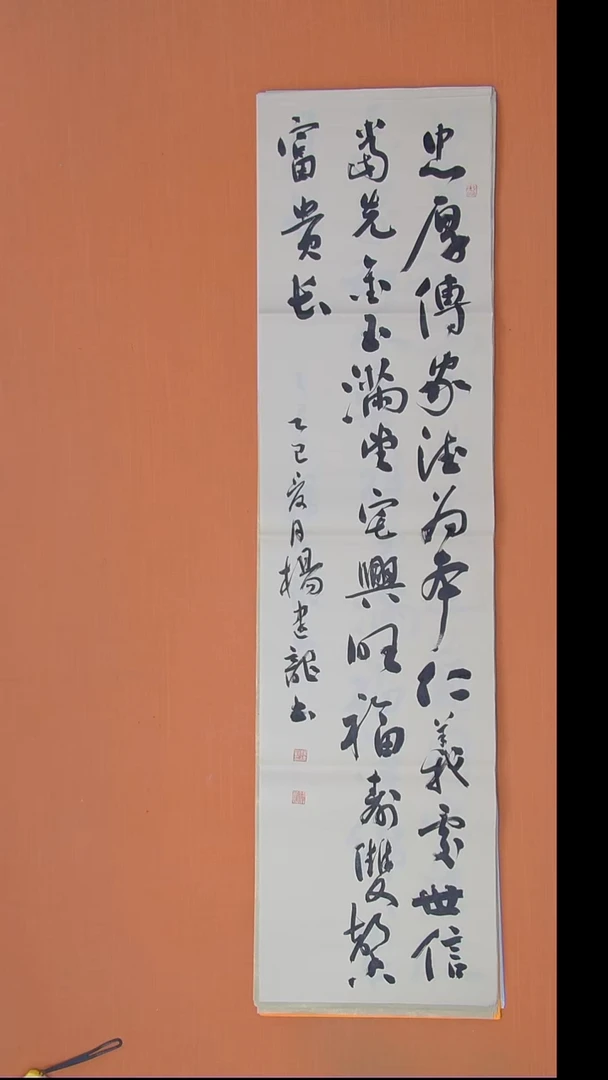 忠厚傳家德為本仁義處世信
當先金玉滿堂宅興旺福壽雙馨
富貴長
乙巳夏月楊建龍书